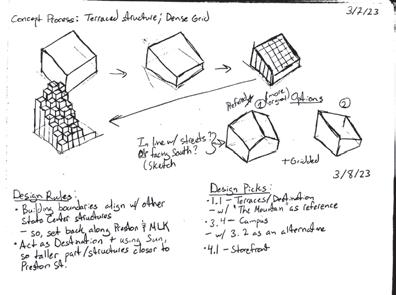 Concept Process: Terraced structure; Dense Grid
3/2/23
(more
Options
①
②
In line w/ streets?
or facing South?
(Sketch
+ Gridded
3/8/23
Design Rules:
• Building boundaries align w/ other
State Center structures
– so, set back along Preston & MLK
• Act as Destination + using Sun,
so taller part/structures closer to
Preston St.
Design Picks:
• 1.1 – Terraces/Destination
– w/ "The Mountain" as reference
• 3.4 – Campus
– w/ 3.2 as an alternative
• 4.1 – Storefront